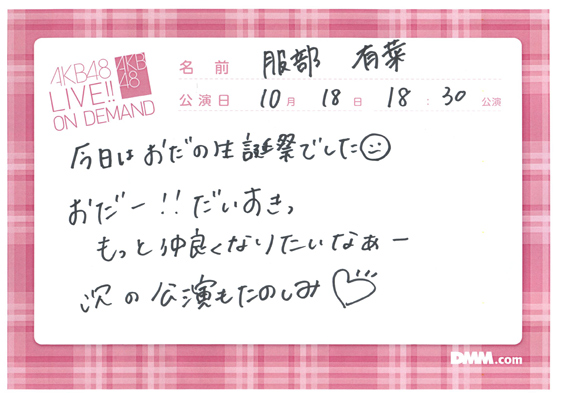 AKB48
LIVE!!
ON DEMAND
AKB
48
名前 服部 有菜
公演日 10月 18日 18:30 公演
今日はおだの生誕祭でした
おだー!!だいすきっ
もっと仲良くなりたいなぁー
次の公演もたのしみ
DMM.com